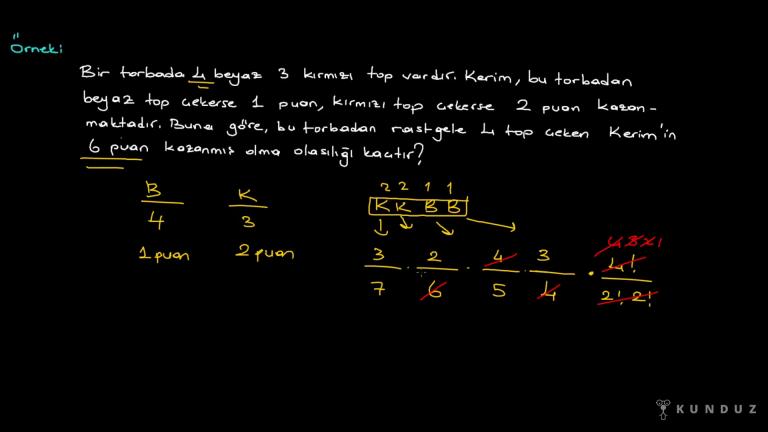 Örnek:
Bir torbada 4 beyaz 3 kırmızı top vardır. Kerim, bu torbadan
beyaz top çekerse 1 puan, kırmızı top çekerse 2 puan kazan-
maktadır. Buna göre, bu torbadan rastgele 4 top çeken Kerim'in
6 puan kazanmış olma olasılığı kaçtır?
B K 2 2 1 1
4 3 K K B B
1 puan 2 puan
3/7 · 2/6 · 4/5 · 3/4 · 4!/2! 2!
KUNDUZ